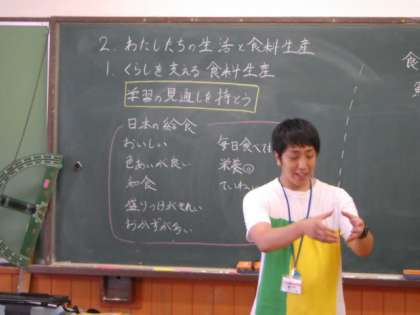 2. わたしたちの生活と食料生産
1. くらしを支える食料生産
学習の見通しを持とう
日本の給食
おいしい
色あいが良い
和食
盛りつけがきれい
おかずが多い
毎日食べて
栄養◎
ていねい
食